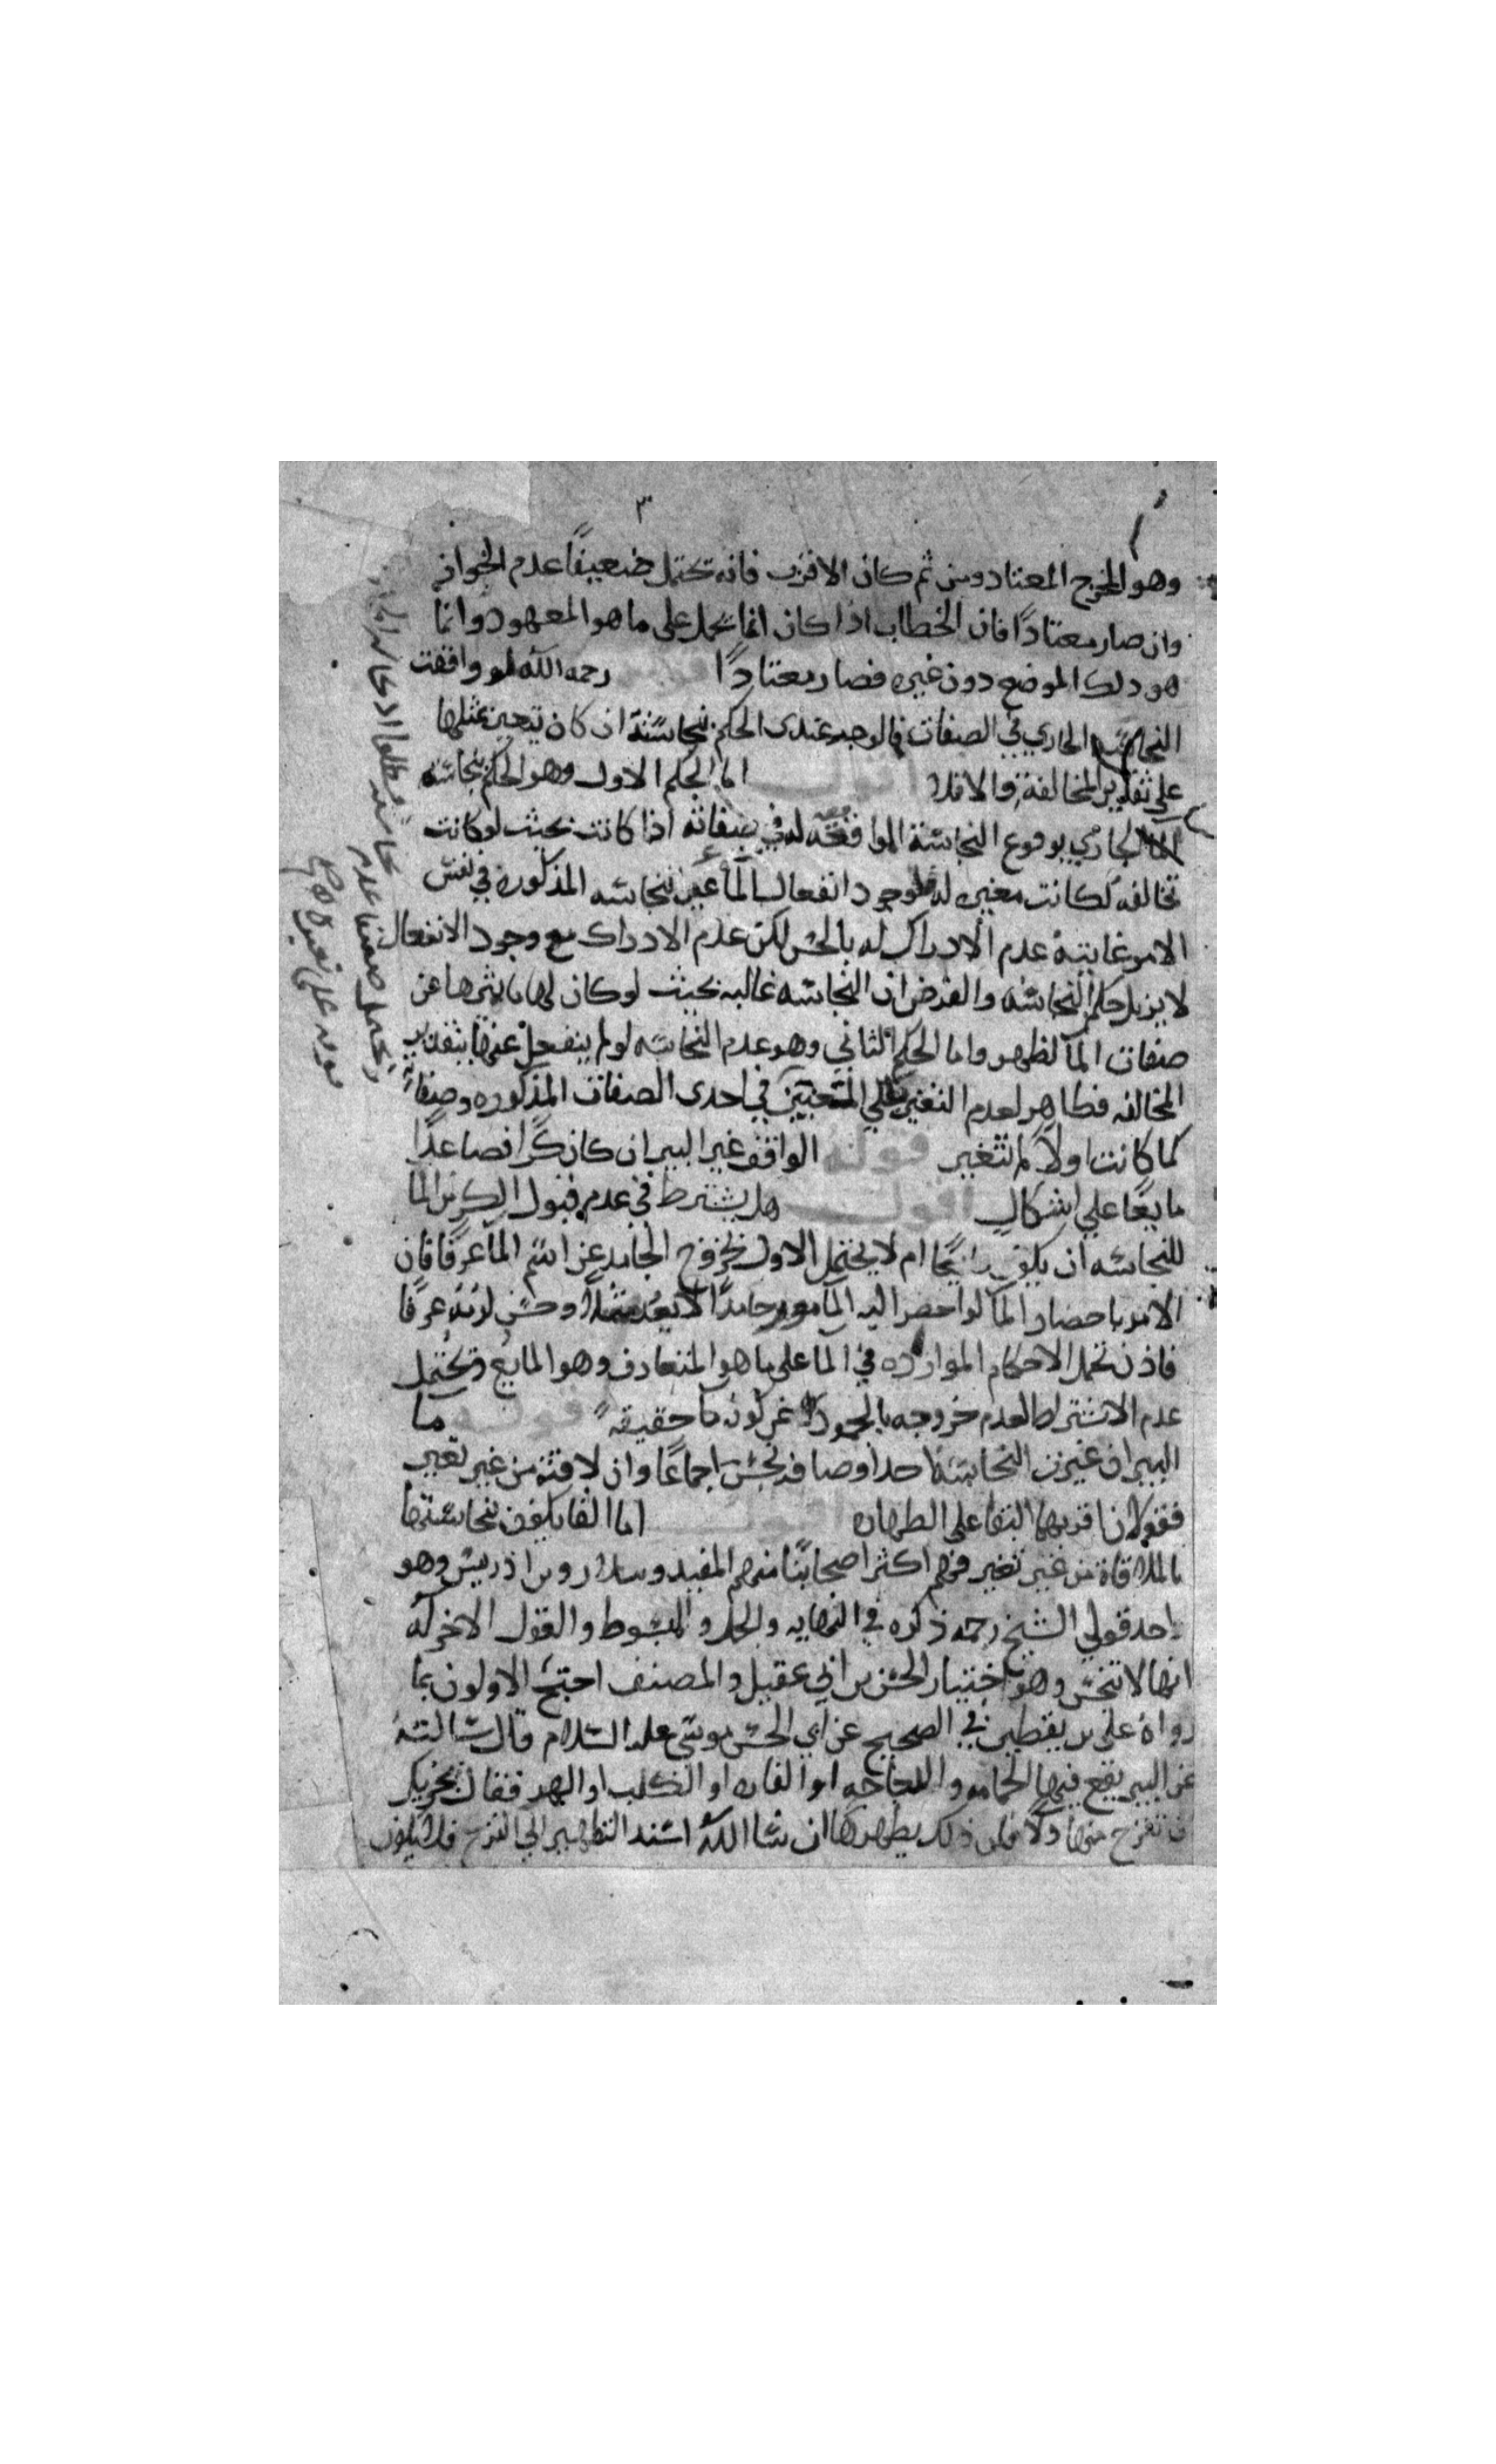 ٣
وهو المخرج المعتاد ومن ثم كان الاقرب فانه يحتمل ضعيفًا عدم الجواز
وان صار معتادًا فان الخطاب اذا كان انما يحمل على ما هو المعهود وانما
هو ذلك الموضع دون غيره فصار معتادًا قوله رحمه الله لو وافقت
النجاسة الجاري في الصفات فالوجه عندي الحكم بنجاسته ان كان يتغير بمثلها
على تقدير المخالفة والا فلا اقول اما الحكم الاول وهو الحكم بنجاسة
الجاري بوقوع النجاسة الموافقة له في صفاته اذا كانت بحيث لو كانت
تخالفه لكانت مغيره له فلوجود انفعال الما عن النجاسه المذكوره في نفس
الامر غايته عدم الادراك له بالحس لكن عدم الادراك مع وجود الانفعال
لا يزيل حكم النجاسه والفرض ان النجاسه غالبه بحيث لو كان لها ما يميزها عن
صفات الما لظهر واما الحكم الثاني وهو عدم النجاسه لو لم ينفعل عنها بتقدير
المخالفه فظاهر لعدم التغير في احدى الصفات المذكوره وصفاته
كما كانت اولا لم تتغير قوله الواقف غير البير ان كان كرًا فصاعدًا
مايعًا على اشكال اقول هل يشترط في عدم قبول الكر من الما
للنجاسه ان يكون مايعًا ام لا يحتمل الاول لخروج الجامد عن اسم الما عرفًا فان
الامر باحضار الما لو احضر اليه المامور جامدًا لا يعد ممتثلا وحسن لومه عرفًا
فاذن تحمل الاحكام الموارده في الما على ما هو المتعارف وهو المايع ويحتمل
عدم الاشتراط لعدم خروجه بالجمود عن كونه ما حقيقه قوله ما
البير ان غيرت النجاسة احد اوصافه نجس اجماعًا وان لاقته من غير تغير
فقولان اقربهما البقا على الطهاره اقول اما القايلون بنجاستها
بالملاقاة من غير تغير فهم اكثر اصحابنا منهم المفيد وسلار وبن ادريس وهو
احد قولي الشيخ رحمه ذكره في النهايه والجمل والمبسوط والقول الاخر له
انها لا تنجس وهو اختيار الحسن بن ابي عقيل والمصنف احتج الاولون بما
رواه علي بن يقطين في الصحيح عن ابي الحسن موسى عليه السلام قال سالته
عن البير يقع فيها الحمامه والدجاجه او الفاره او الكلب او الهر فقال يجزيك
ان تنزح منها دلاً فان ذلك يطهرها ان شا الله اسند التطهير الى النزح فلا يكون
ويحتمل ضعيفا عدم